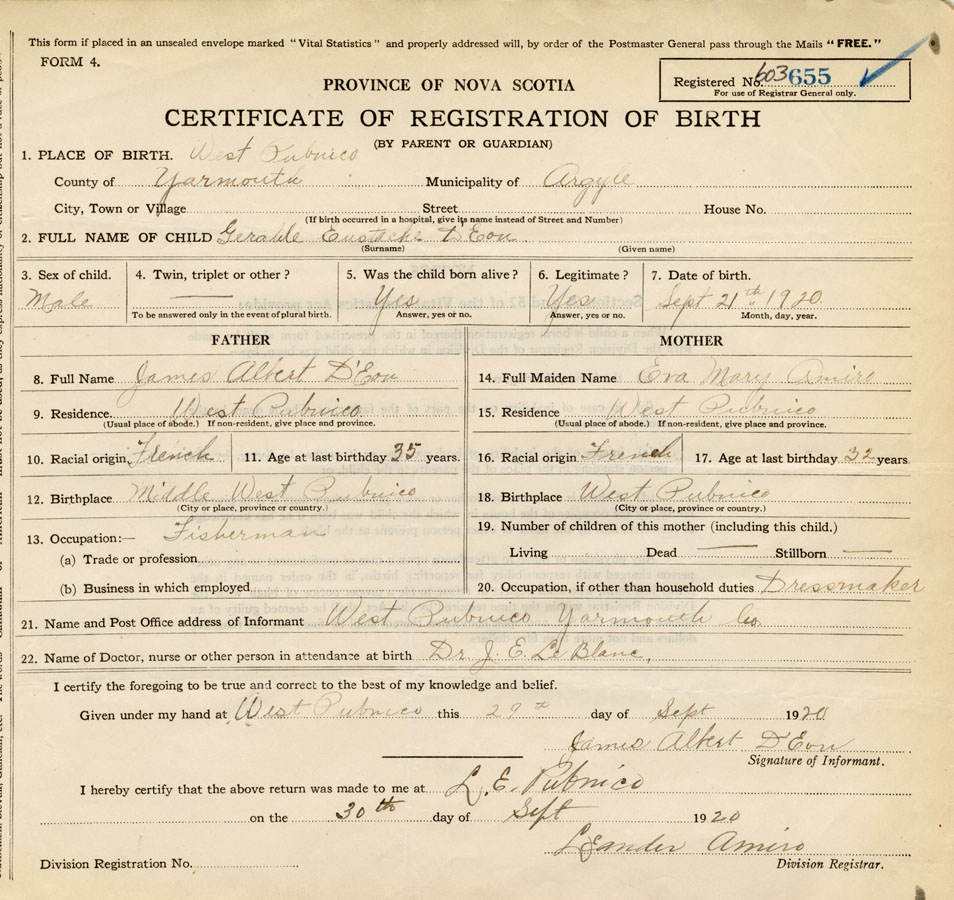 This form if placed in an unsealed envelope marked "Vital Statistics" and properly addressed will, by order of the Postmaster General pass through the Mails "FREE."
FORM 4.
Registered No. 603 655
For use of Registrar General only.
PROVINCE OF NOVA SCOTIA
CERTIFICATE OF REGISTRATION OF BIRTH
(BY PARENT OR GUARDIAN)
1. PLACE OF BIRTH. West Pubnico
County of Yarmouth Municipality of Argyle
City, Town or Village Street House No.
(If birth occurred in a hospital, give its name instead of Street and Number)
2. FULL NAME OF CHILD Geralde Eustache D'Eon
(Surname) (Given name)
3. Sex of child. 4. Twin, triplet or other? 5. Was the child born alive? 6. Legitimate? 7. Date of birth.
Male Yes Yes Sept 21th 1920
To be answered only in the event of plural birth. Answer, yes or no. Answer, yes or no. Month, day, year.
FATHER MOTHER
8. Full Name James Albert D'Eon 14. Full Maiden Name Eva Mary Amiro
9. Residence. West Pubnico 15. Residence West Pubnico
(Usual place of abode.) If non-resident, give place and province. (Usual place of abode.) If non-resident, give place and province.
10. Racial origin French 11. Age at last birthday 35 years. 16. Racial origin French 17. Age at last birthday 32 years.
12. Birthplace Middle West Pubnico 18. Birthplace West Pubnico
(City or place, province or country.) (City or place, province or country.)
13. Occupation:— Fisherman 19. Number of children of this mother (including this child.)
(a) Trade or profession Living Dead Stillborn
(b) Business in which employed 20. Occupation, if other than household duties Dressmaker
21. Name and Post Office address of Informant West Pubnico Yarmouth Co.
22. Name of Doctor, nurse or other person in attendance at birth Dr. J. E. Le Blanc,
I certify the foregoing to be true and correct to the best of my knowledge and belief.
Given under my hand at West Pubnico this 29th day of Sept 1920
James Albert D'Eon
Signature of Informant.
I hereby certify that the above return was made to me at L. E. Pubnico
on the 30th day of Sept 1920
Leander Amiro
Division Registration No. Division Registrar.